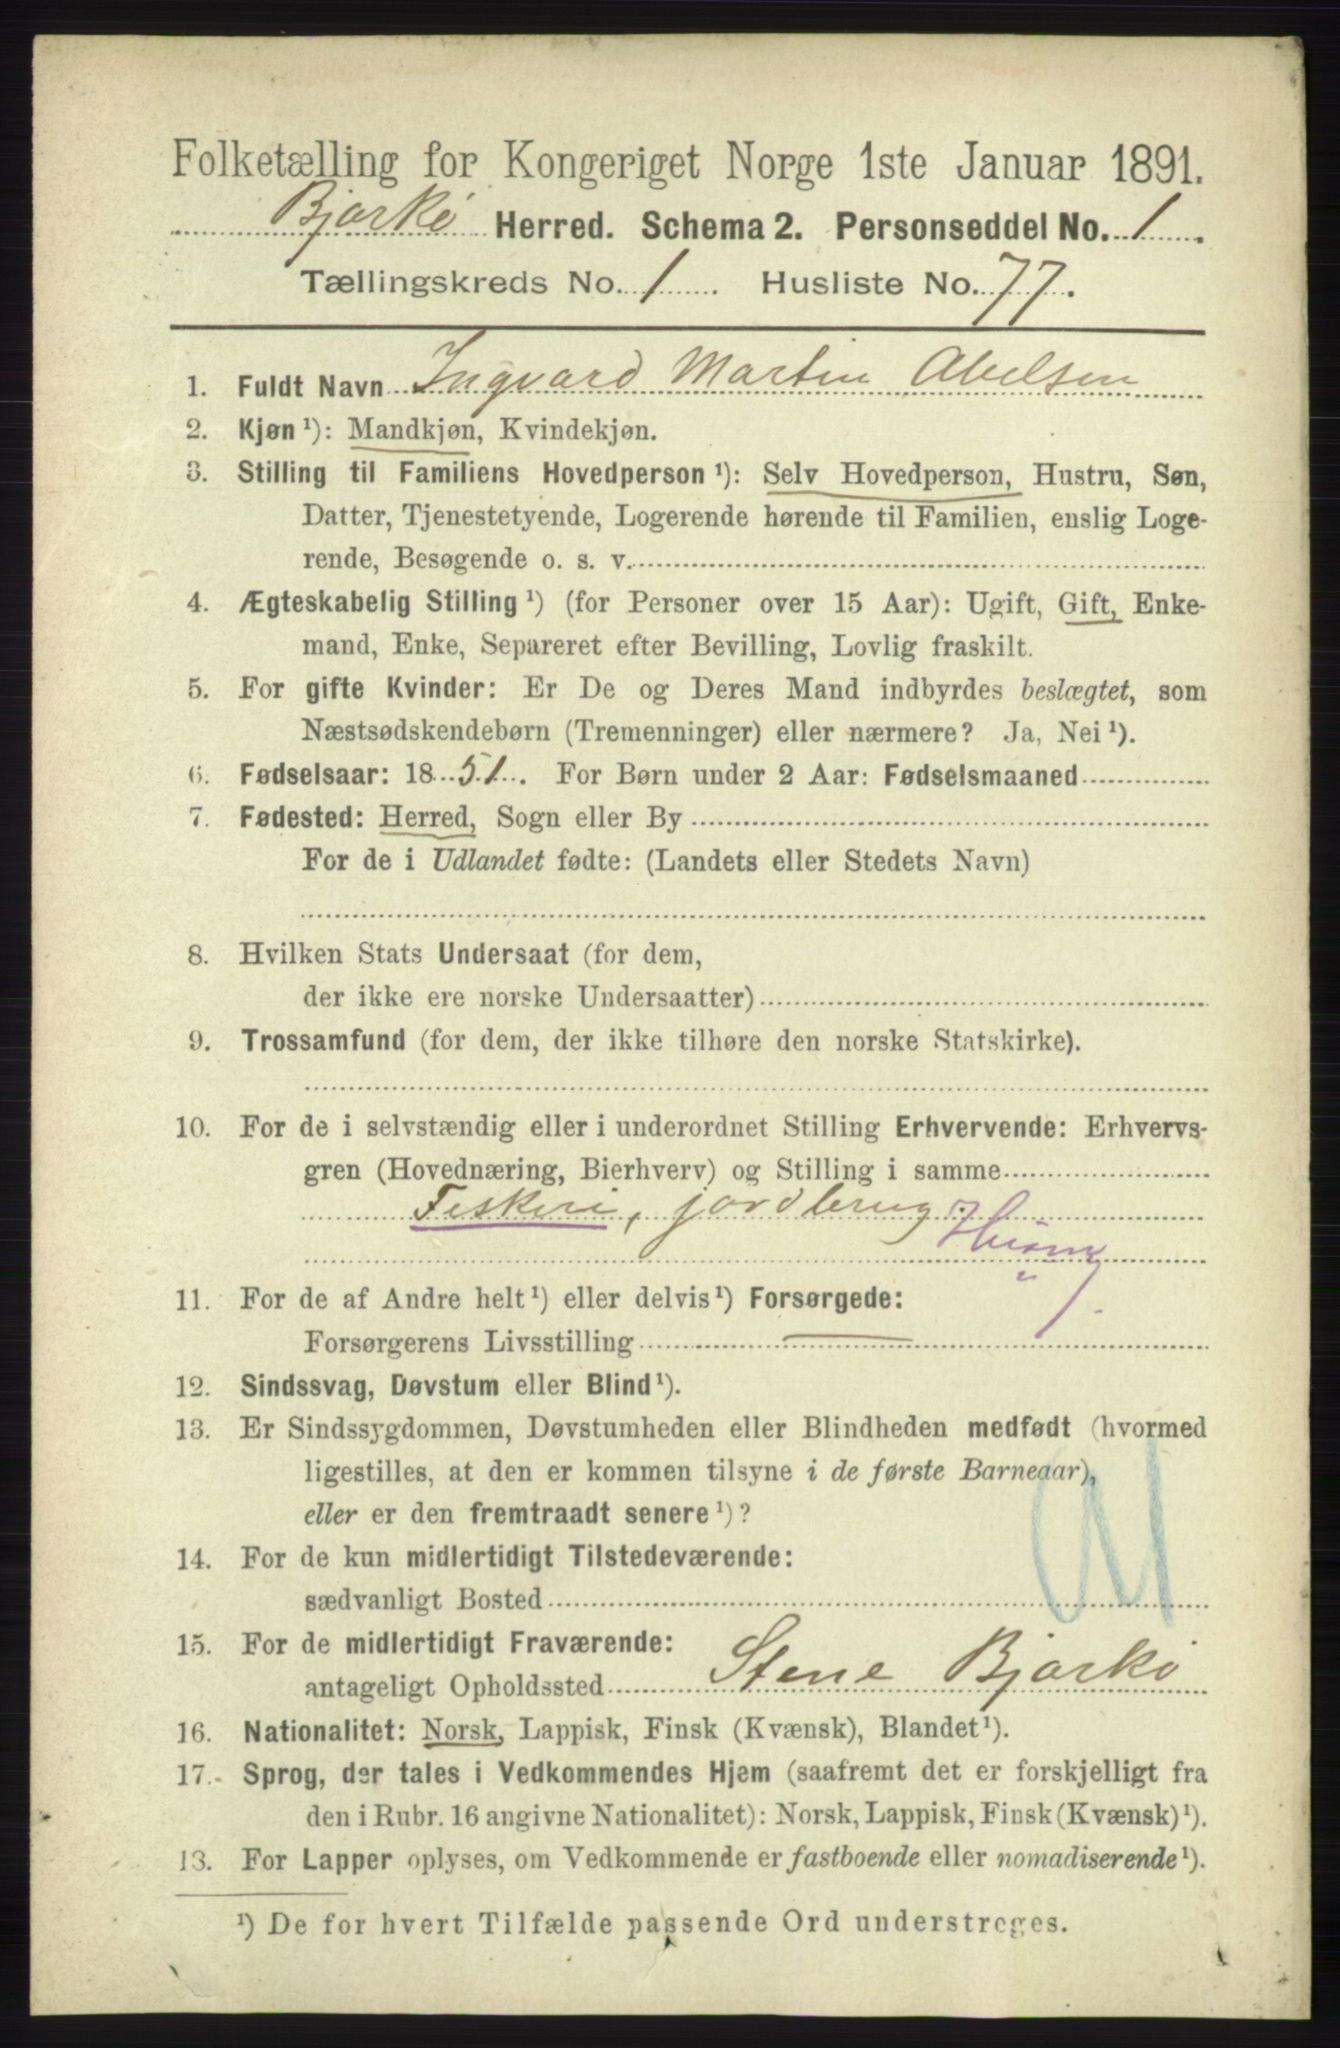 Folketælling for Kongeriget Norge 1ste Januar 1891.
Bjarkö Herred. Schema 2. Personseddel No. 1.
Tællingskreds No. 1 Husliste No. 77.
1. Fuldt Navn Ingvard Martin Abelsen
2. Kjøn ¹): Mandkjøn, Kvindekjøn.
3. Stilling til Familiens Hovedperson ¹): Selv Hovedperson, Hustru, Søn,
Datter, Tjenestetyende, Logerende hørende til Familien, enslig Loge-
rende, Besøgende o. s. v.
4. Ægteskabelig Stilling ¹) (for Personer over 15 Aar): Ugift, Gift, Enke-
mand, Enke, Separeret efter Bevilling, Lovlig fraskilt.
5. For gifte Kvinder: Er De og Deres Mand indbyrdes beslægtet, som
Næstsødskendebørn (Tremenninger) eller nærmere? Ja, Nei ¹).
6. Fødselsaar: 1851. For Børn under 2 Aar: Fødselsmaaned
7. Fødested: Herred, Sogn eller By
For de i Udlandet fødte: (Landets eller Stedets Navn)
8. Hvilken Stats Undersaat (for dem,
der ikke ere norske Undersaatter)
9. Trossamfund (for dem, der ikke tilhøre den norske Statskirke).
10. For de i selvstændig eller i underordnet Stilling Erhvervende: Erhvervs-
gren (Hovednæring, Bierhverv) og Stilling i samme
Fiskeri, jordbrug.
11. For de af Andre helt ¹) eller delvis ¹) Forsørgede:
Forsørgerens Livsstilling
12. Sindssvag, Døvstum eller Blind ¹).
13. Er Sindssygdommen, Døvstumheden eller Blindheden medfødt (hvormed
ligestilles, at den er kommen tilsyne i de første Barneaar),
eller er den fremtraadt senere ¹)?
14. For de kun midlertidigt Tilstedeværende:
sædvanligt Bosted
15. For de midlertidigt Fraværende:
antageligt Opholdssted Stene Bjarkö
16. Nationalitet: Norsk, Lappisk, Finsk (Kvænsk), Blandet ¹).
17. Sprog, der tales i Vedkommendes Hjem (saafremt det er forskjelligt fra
den i Rubr. 16 angivne Nationalitet): Norsk, Lappisk, Finsk (Kvænsk) ¹).
13. For Lapper oplyses, om Vedkommende er fastboende eller nomadiserende ¹).
¹) De for hvert Tilfælde passende Ord understreges.